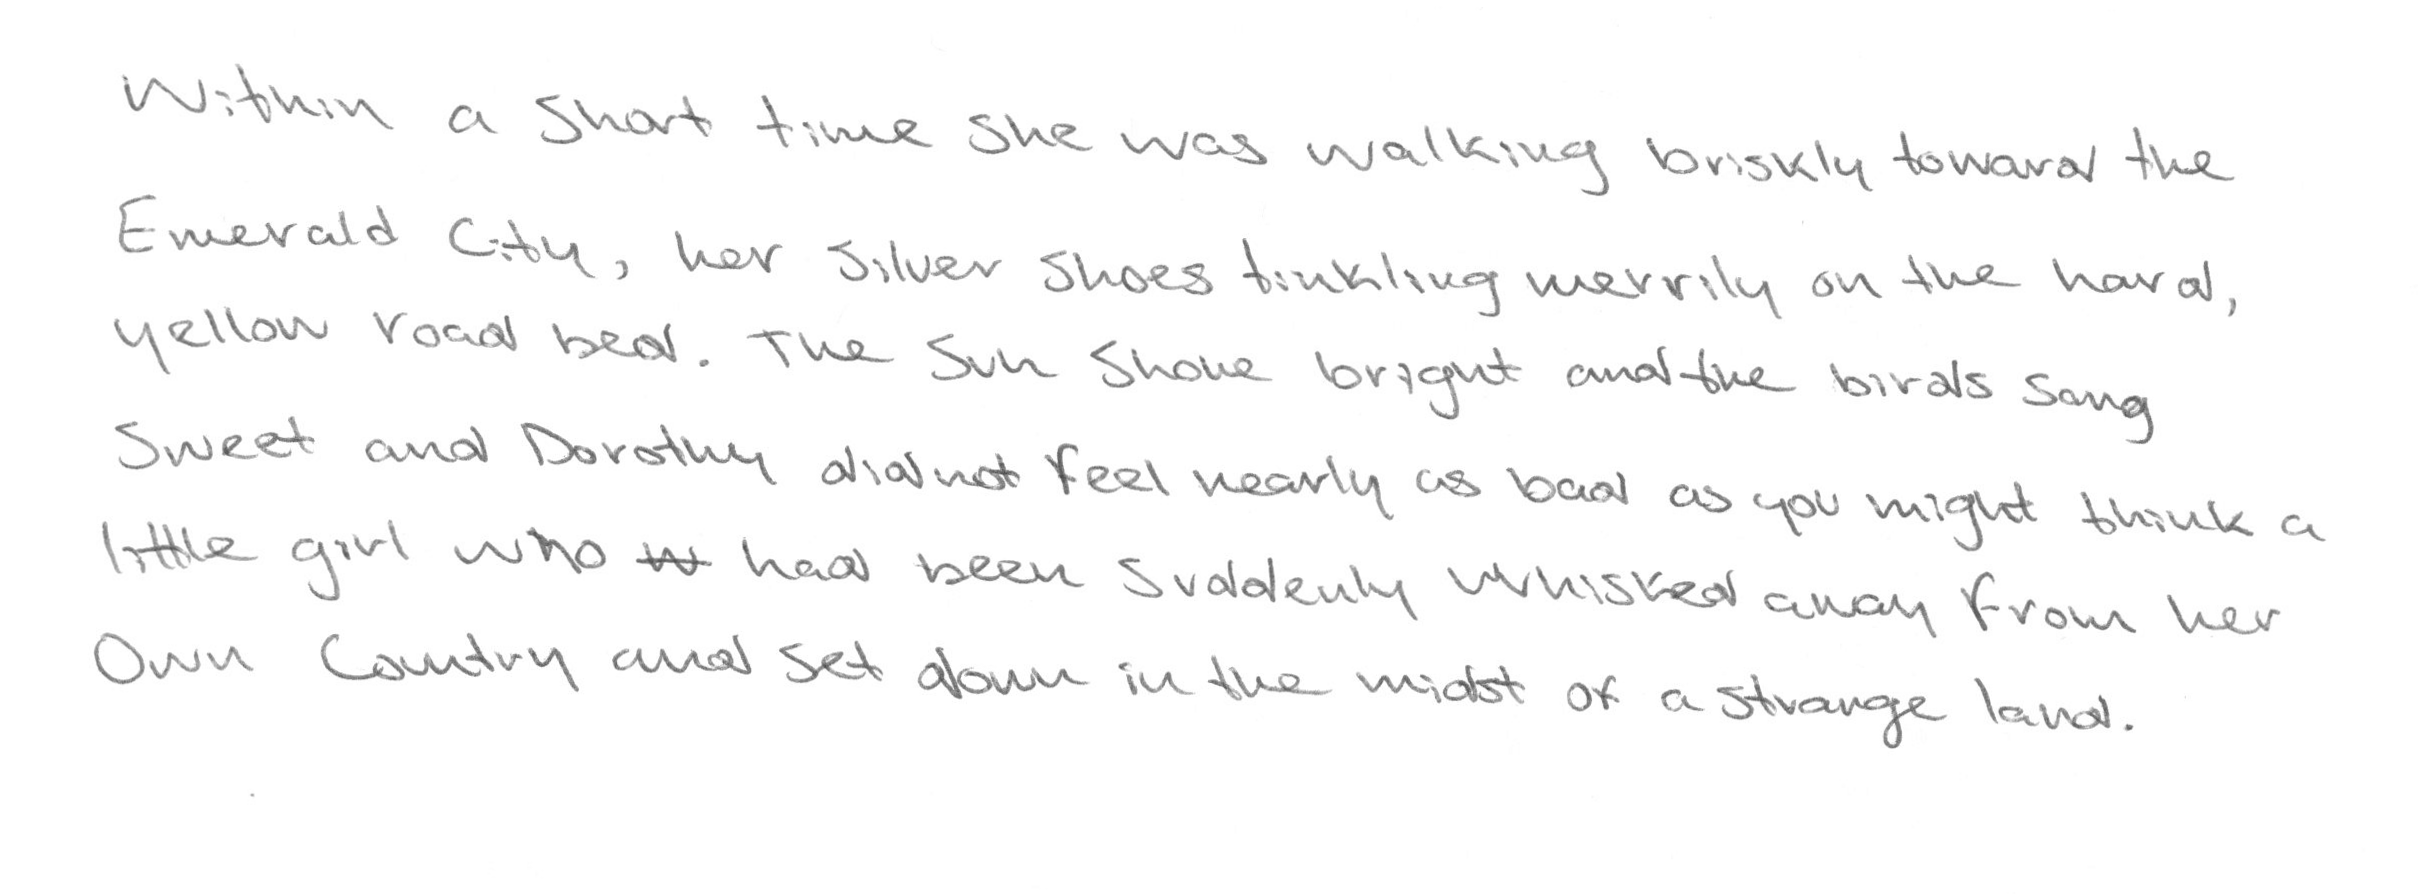 Within a short time she was walking briskly toward the
Emerald City, her silver shoes tinkling merrily on the hard,
yellow road bed. The sun shone bright and the birds sang
sweet and Dorothy did not feel nearly as bad as you might think a
little girl who had been suddenly whisked away from her
own country and set down in the midst of a strange land.